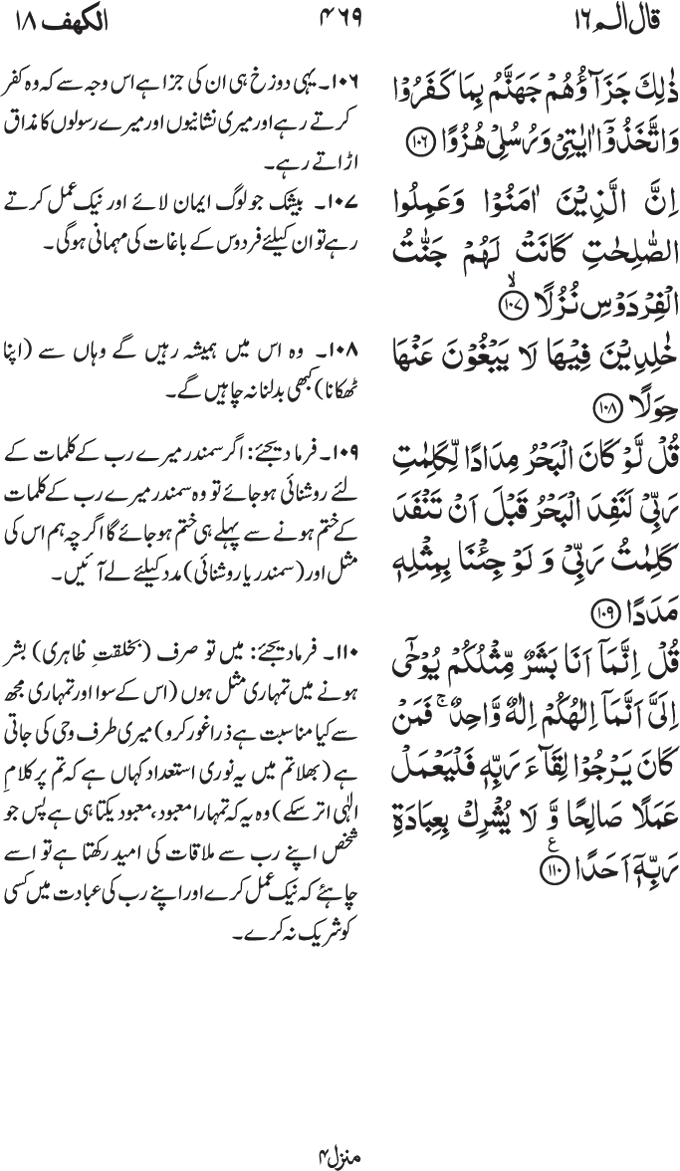 قال الم ١٦
۴۶۹
الکھف ۱۸
ذٰلِكَ جَزَآؤُهُمْ جَهَنَّمُ بِمَا كَفَرُوْا
وَاتَّخَذُوْۤا اٰيٰتِيْ وَرُسُلِيْ هُزُوًا ﴿۱۰۶﴾
اِنَّ الَّذِيْنَ اٰمَنُوْا وَعَمِلُوا
الصّٰلِحٰتِ كَانَتْ لَهُمْ جَنّٰتُ
الْفِرْدَوْسِ نُزُلًا ۙ﴿۱۰۷﴾
خٰلِدِيْنَ فِيْهَا لَا يَبْغُوْنَ عَنْهَا
حِوَلًا ﴿۱۰۸﴾
قُلْ لَّوْ كَانَ الْبَحْرُ مِدَادًا لِّكَلِمٰتِ
رَبِّيْ لَنَفِدَ الْبَحْرُ قَبْلَ اَنْ تَنْفَدَ
كَلِمٰتُ رَبِّيْ وَ لَوْ جِئْنَا بِمِثْلِهٖ
مَدَدًا ﴿۱۰۹﴾
قُلْ اِنَّمَاۤ اَنَا بَشَرٌ مِّثْلُكُمْ يُوْحٰۤى
اِلَيَّ اَنَّمَاۤ اِلٰهُكُمْ اِلٰهٌ وَّاحِدٌ ۚ فَمَنْ
كَانَ يَرْجُوْا لِقَآءَ رَبِّهٖ فَلْيَعْمَلْ
عَمَلًا صَالِحًا وَّ لَا يُشْرِكْ بِعِبَادَةِ
رَبِّهٖۤ اَحَدًا ﴿۱۱۰﴾ ع
۱۰۶۔ یہی دوزخ ہی ان کی جزا ہے اس وجہ سے کہ وہ کفر
کرتے رہے اور میری نشانیوں اور میرے رسولوں کا مذاق
اڑاتے رہے۔
۱۰۷۔ بیشک جو لوگ ایمان لائے اور نیک عمل کرتے
رہے تو ان کیلئے فردوس کے باغات کی مہمانی ہوگی۔
۱۰۸۔ وہ اس میں ہمیشہ رہیں گے وہاں سے (اپنا
ٹھکانا) کبھی بدلنا نہ چاہیں گے۔
۱۰۹۔ فرما دیجئے: اگر سمندر میرے رب کے کلمات کے
لئے روشنائی ہوجائے تو وہ سمندر میرے رب کے کلمات
کے ختم ہونے سے پہلے ہی ختم ہوجائے گا اگرچہ ہم اس کی
مثل اور (سمندر یا روشنائی) مدد کیلئے لے آئیں۔
۱۱۰۔ فرما دیجئے: میں تو صرف (بخلقتِ ظاہری) بشر
ہونے میں تمہاری مثل ہوں (اس کے سوا اور تمہاری مجھ
سے کیا مناسبت ہے ذرا غور کرو) میری طرف وحی کی جاتی
ہے (بھلا تم میں یہ نوری استعداد کہاں ہے کہ تم پر کلامِ
الٰہی اتر سکے) وہ یہ کہ تمہارا معبود، معبودِ یکتا ہی ہے پس جو
شخص اپنے رب سے ملاقات کی امید رکھتا ہے تو اسے
چاہئے کہ نیک عمل کرے اور اپنے رب کی عبادت میں کسی
کو شریک نہ کرے۔
منزل ۴